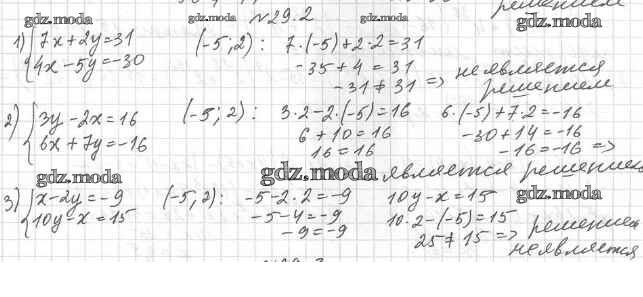 решением
gdz.moda gdz.moda №29.2 gdz.moda gdz.moda
1) {7x+2y=31 (-5;2): 7·(-5)+2·2=31
{4x-5y=-30 -35+4=31 не является
-31≠31 => решением
2) {3y-2x=16 (-5;2): 3·2-2·(-5)=16 6·(-5)+7·2=-16
{6x+7y=-16 6+10=16 -30+14=-16
16=16 -16=-16 =>
gdz.moda gdz.moda является решением
3) {x-2y=-9 (-5;2): -5-2·2=-9 10y-x=15 gdz.moda
{10y-x=15 -5-4=-9 10·2-(-5)=15
-9=-9 25≠15 => решением
не является